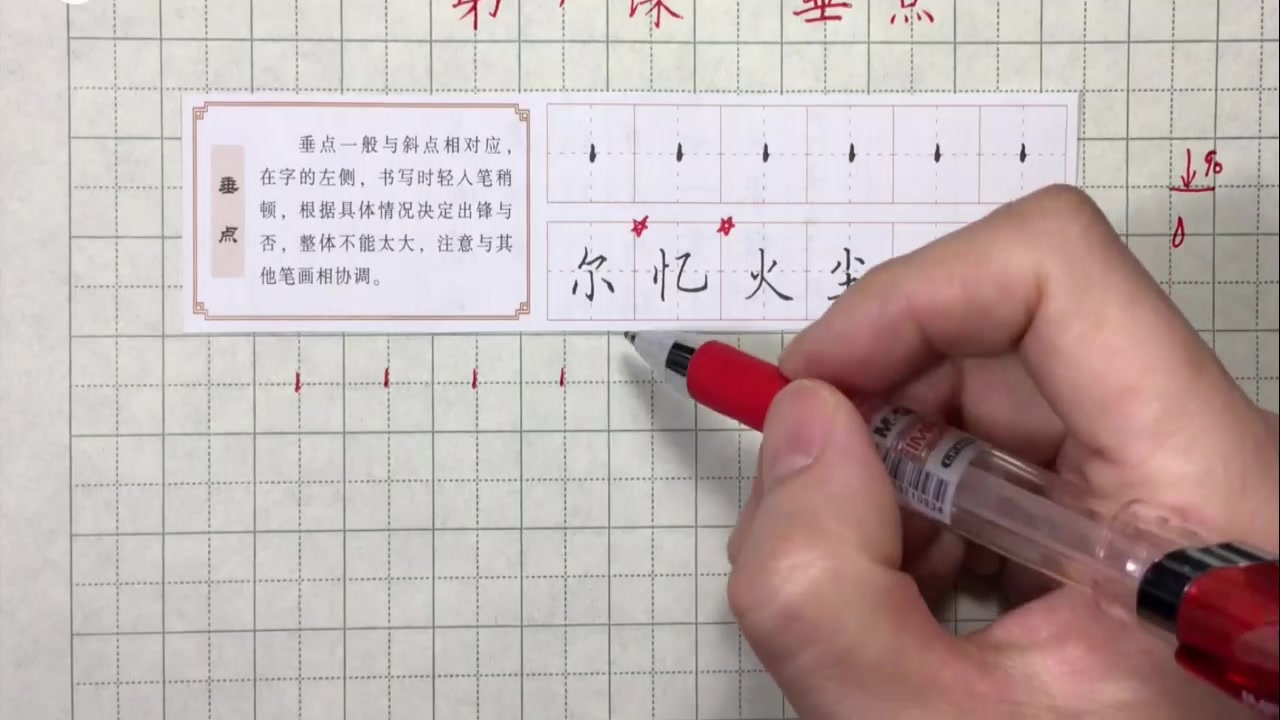 课 垂点
垂点
垂点一般与斜点相对应，
在字的左侧，书写时轻入笔稍
顿，根据具体情况决定出锋与
否，整体不能太大，注意与其
他笔画相协调。
尔 忆 火 尘